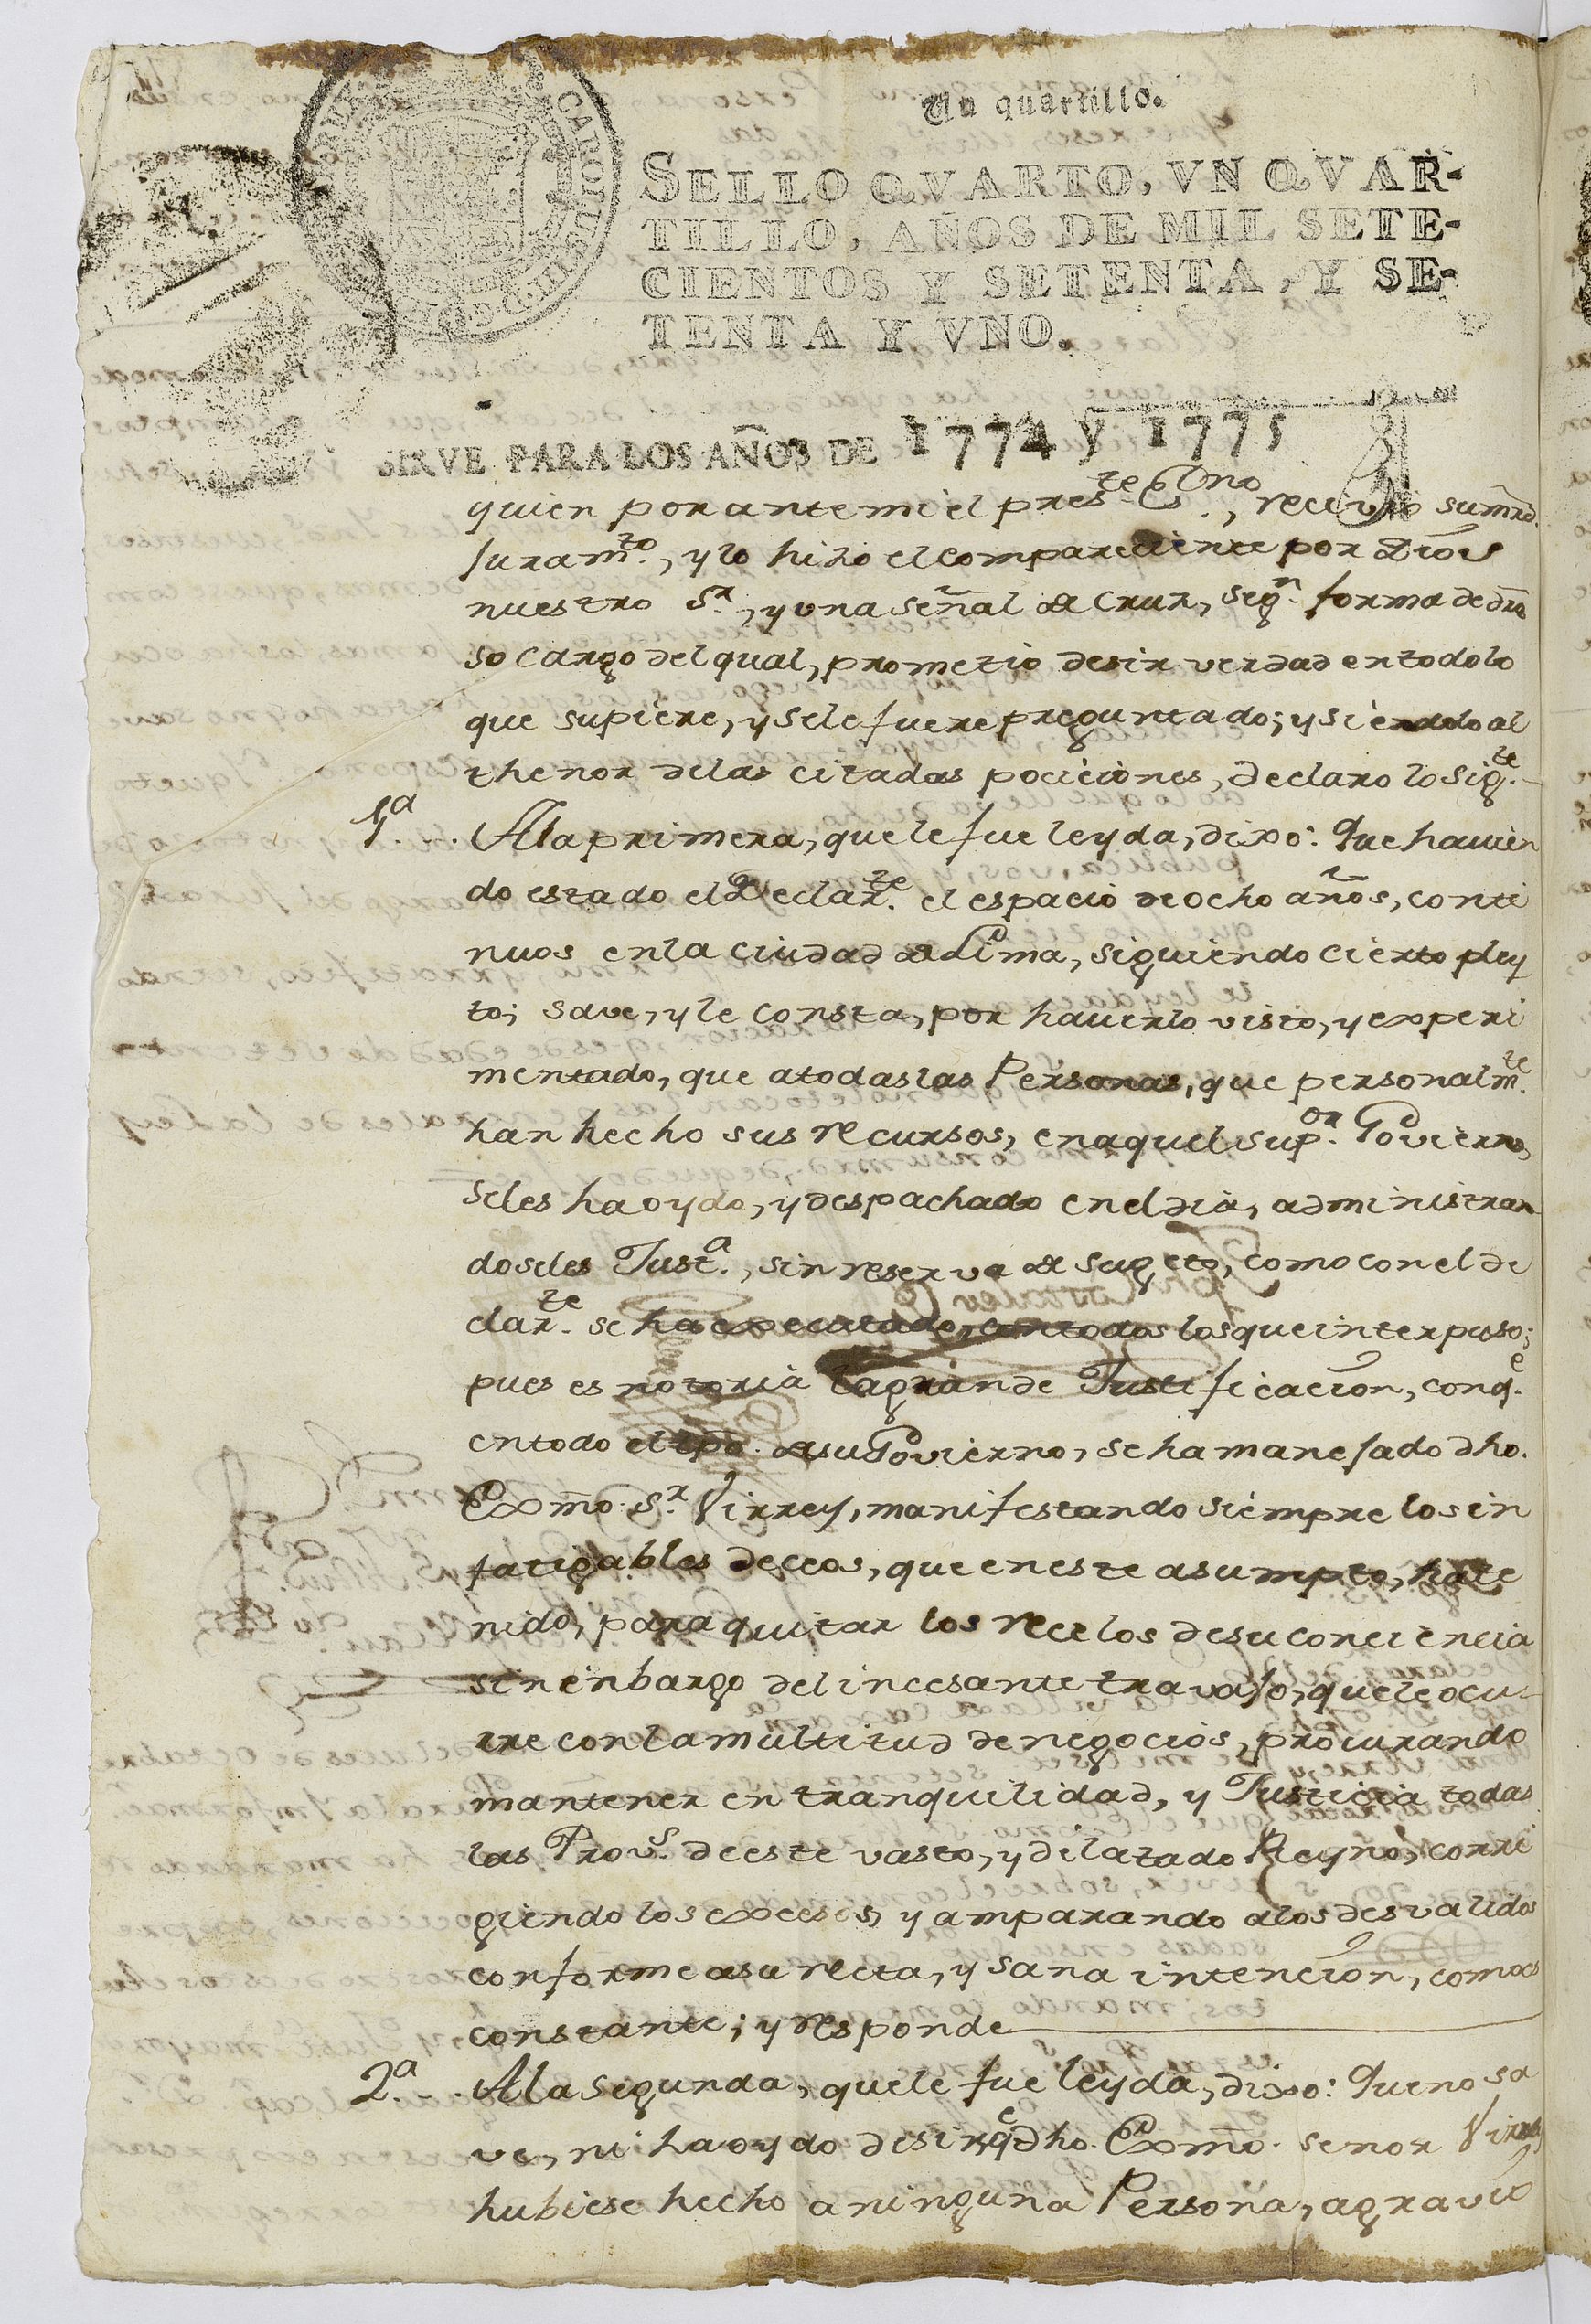 Un quartillo.
SELLO QVARTO, VN QVAR-
TILLO, AÑOS DE MIL SETE-
CIENTOS Y SETENTA, Y SE-
TENTA Y VNO.
SIRVE PARA LOS AÑOS DE 1774 y 1775
quien por ante mi el pres.te Es.no, recivio sumrd.
Juram.to, y lo hizo el compareciente por Dios
nuestro S.r, y una señal de Cruz, seg.n forma de dro
so cargo del qual, prometio desir verdad en todo lo
que supiere, y se le fuere preguntado; y siendo al
thenor de las citadas pociciones, declaro lo sig.te
1.a A la primera, que le fue leyda, dixo: Que havien
do estado el Declar.te el espacio de ocho años, conti
nuos en la ciudad de Lima, siguiendo cierto pley
to; save, y le consta, por haverlo visto, y experi
mentado, que a todas las Personas, que personalm.te
han hecho sus recursos, en aquel sup.or Govierno,
se les ha oydo, y despachado en el dia, administran
doseles Just.a, sin reserva de sugeto, como con el de
clar.te se ha executado, con todos los que interpuso;
pues es notoria la grande Justificacion, con q.e
en todo el tpo. de su Govierno, se ha manejado dho.
Exmo. S.r Virrey, manifestando siempre los in
fatigables deceos, que en este asumpto, ha te
nido, para quitar los recelos de su conciencia
sin enbargo del incesante travajo, que le ocu-
rre con la multitud de negocios, procurando
mantener en tranquilidad, y Justicia todas
las Prov.s de este vasto, y dilatado Reyno, corri
giendo los excesos, y amparando a los desvalidos
conforme a su recta, y sana intencion, como es
constante; y responde
2.a A la segunda, que le fue leyda, dixo: Que no sa
ve, ni ha oydo desir q.e dho. Exmo. senor Virrey
hubiese hecho a ninguna Persona, agravio